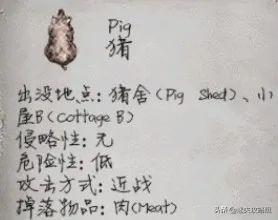 Pig
猪
出没地点：猪舍(Pig Shed)、小
屋B(Cottage B)
侵略性：无
危险性：低
攻击方式：近战
掉落物品：肉(Meat)